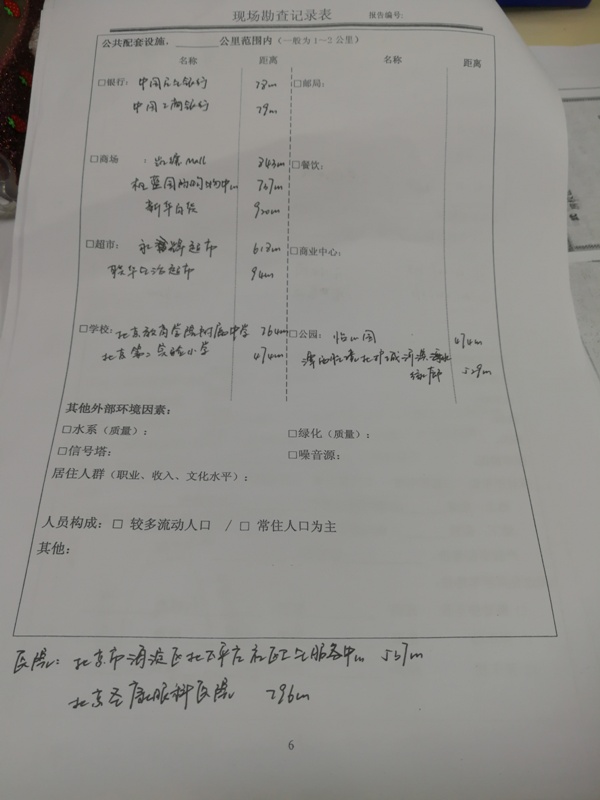 现场勘查记录表 报告编号:
公共配套设施，______公里范围内（一般为1~2公里）
名称 距离 名称 距离
□银行: 中国民生银行 78m □邮局:
中国工商银行 79m
□商场 : Mall 343m □餐饮:
购物中心 767m
新华百货 920m
□超市: 超市 613m □商业中心:
生活超市 94m
□学校: 北京教育学院附属中学 764m □公园: 怡心园 474m
北京第二实验小学 474m
绿廊 529m
其他外部环境因素:
□水系（质量）: □绿化（质量）:
□信号塔: □噪音源:
居住人群（职业、收入、文化水平）:
人员构成: □ 较多流动人口 / □ 常住人口为主
其他:
医院: 北京市海淀区北下关社区卫生服务中心 537m
北京圣康眼科医院 796m
6